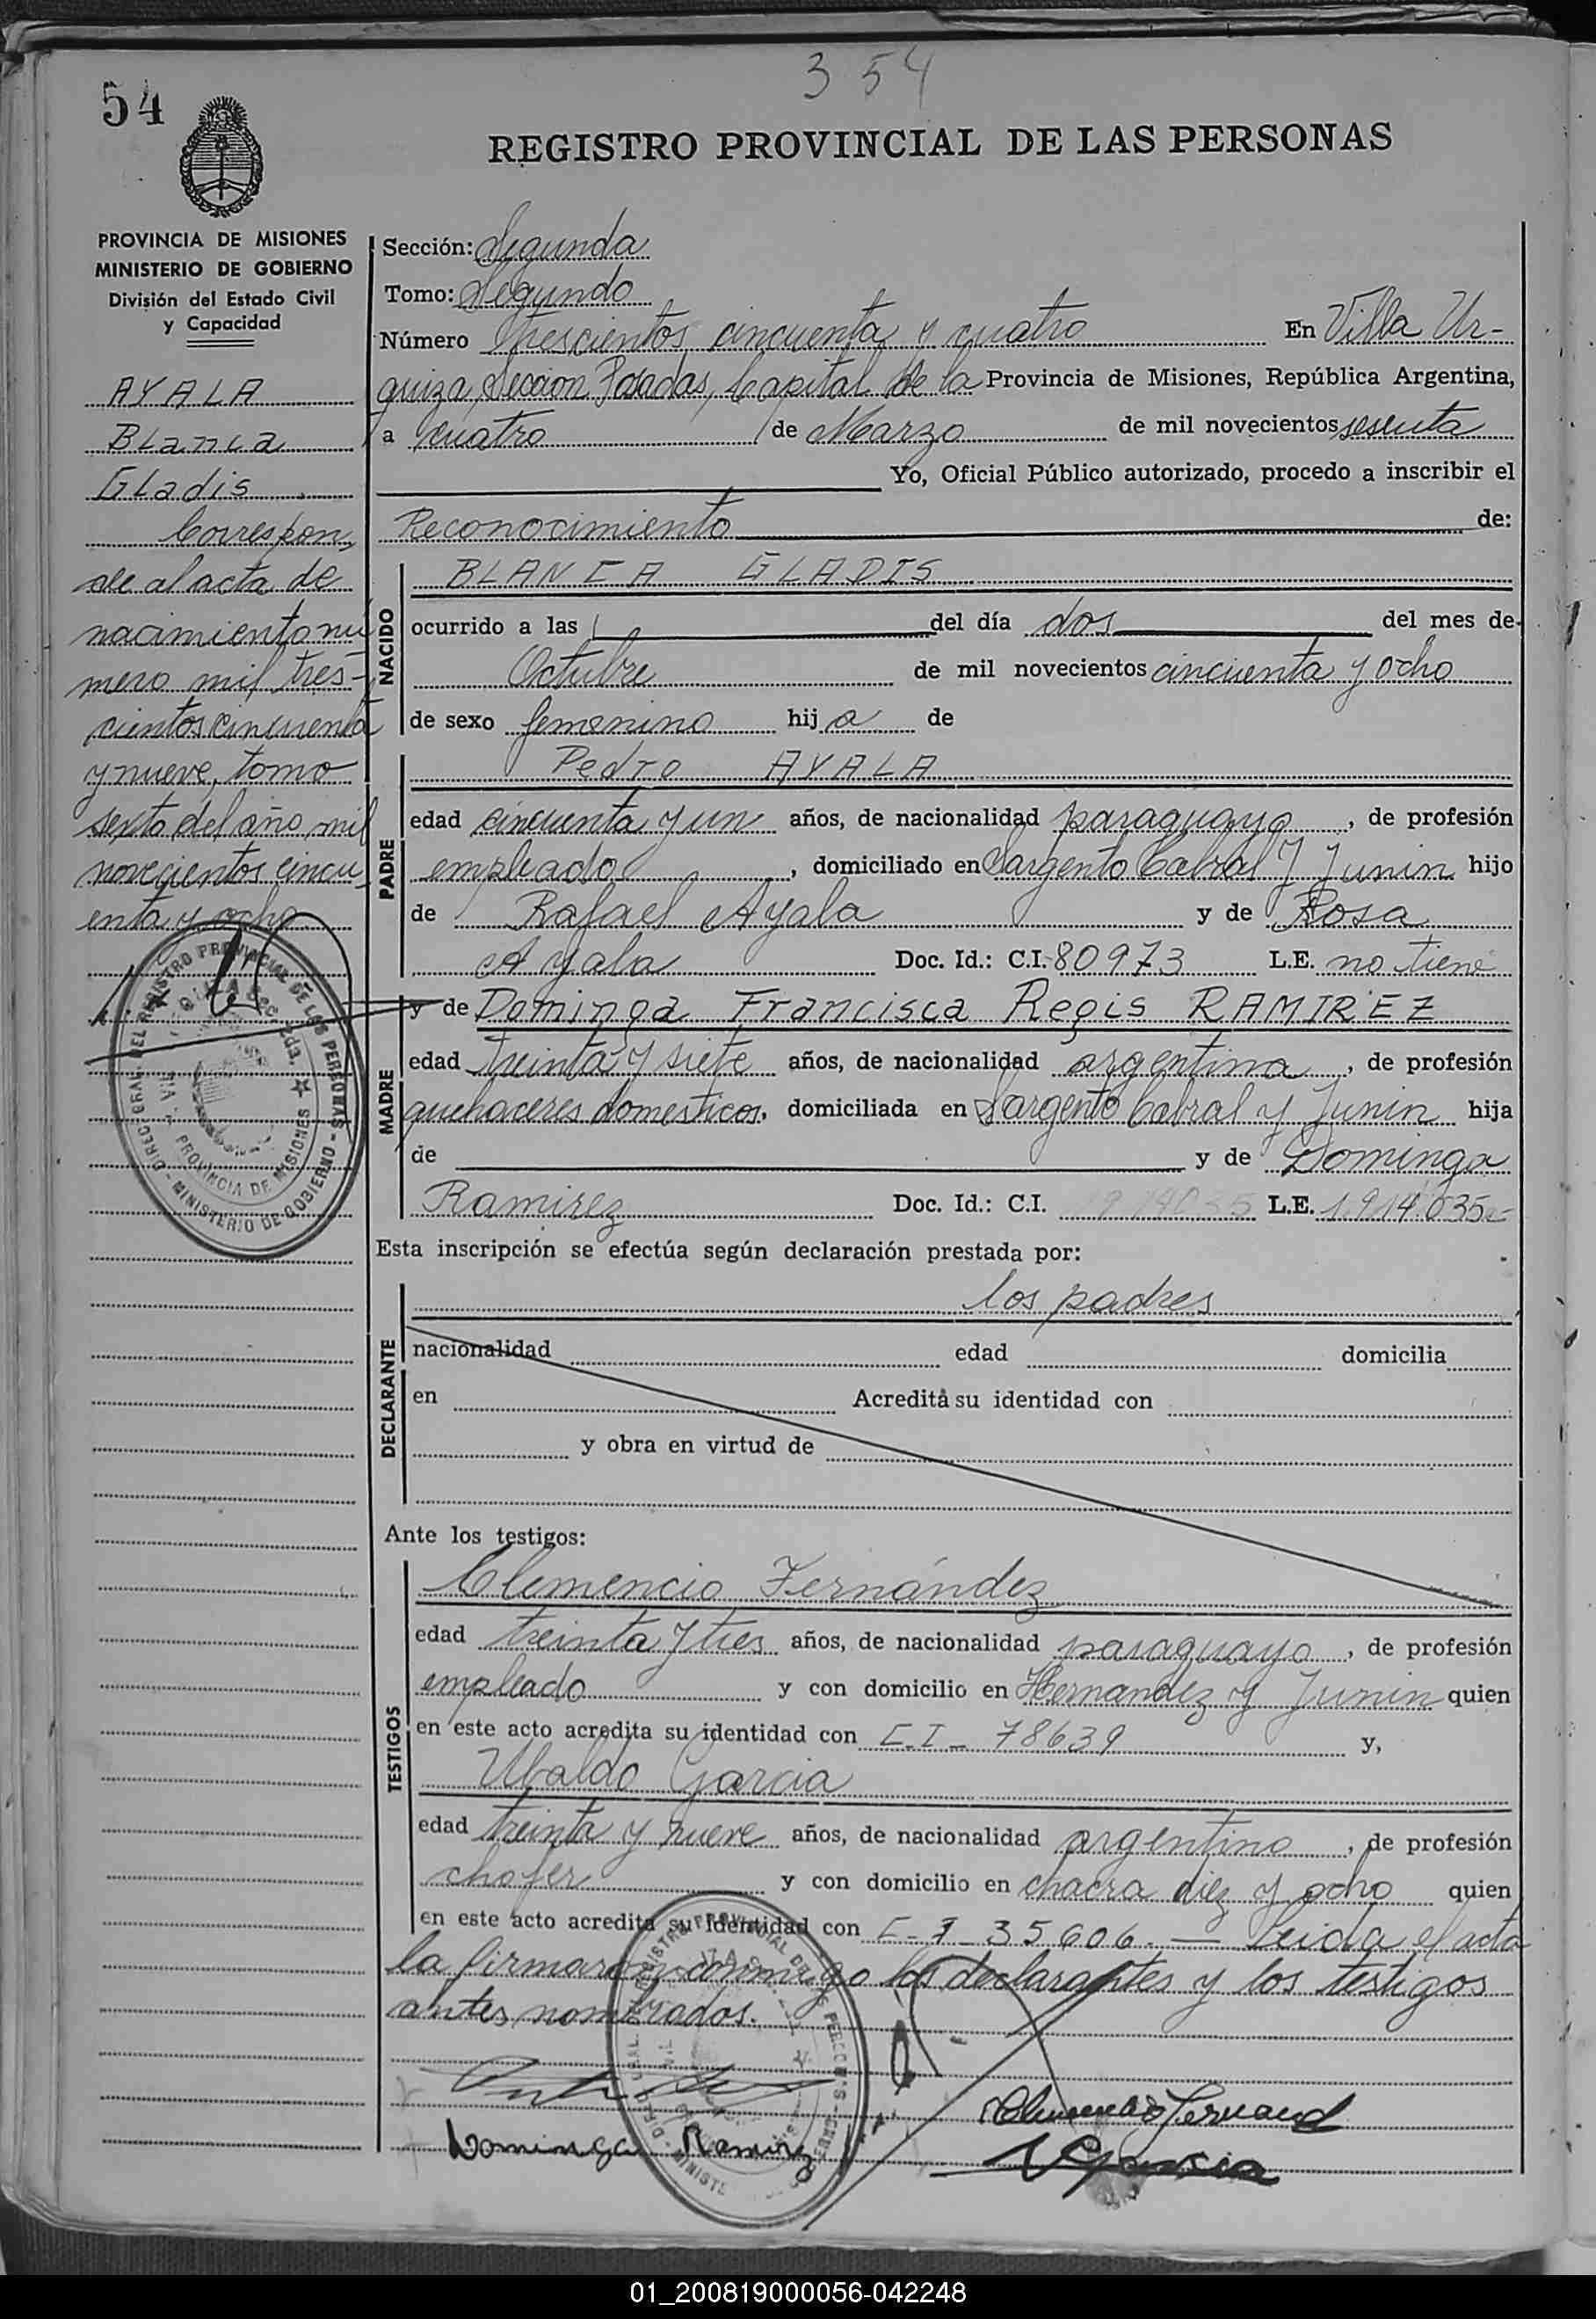 3 54
54
REGISTRO PROVINCIAL DE LAS PERSONAS
PROVINCIA DE MISIONES
MINISTERIO DE GOBIERNO
División del Estado Civil
y Capacidad
AYALA
Blanca
Gladis
Correspon
de al acta de
nacimiento nú
mero mil tres-
cientos cincuenta
y nueve, tomo
sexto del año mil
novecientos cincu-
enta y ocho
Sección: Segunda
Tomo: Segundo
Número Trescientos cincuenta y cuatro En Villa Ur-
quiza, Seccion Posadas, Capital de la Provincia de Misiones, República Argentina,
a cuatro de Marzo de mil novecientos sesenta
Yo, Oficial Público autorizado, procedo a inscribir el
Reconocimiento de:
NACIDO
BLANCA GLADIS
ocurrido a las del día dos del mes de
Octubre de mil novecientos cincuenta y ocho
de sexo femenino hij a de
PADRE
Pedro AYALA
edad cincuenta y un años, de nacionalidad paraguayo, de profesión
empleado, domiciliado en Sargento Cabral y Junin hijo
de Rafael Ayala y de Rosa
Ayala Doc. Id.: C.I. 80973 L.E. no tiene
MADRE
y de Dominga Francisca Regis RAMIREZ
edad treinta y siete años, de nacionalidad argentina, de profesión
quehaceres domesticos, domiciliada en Sargento Cabral y Junin hija
de y de Dominga
Ramirez Doc. Id.: C.I. L.E. 1.914.035-
Esta inscripción se efectúa según declaración prestada por:
DECLARANTE
los padres
nacionalidad edad domicilia
en Acredita su identidad con
y obra en virtud de
Ante los testigos:
TESTIGOS
Clemencio Fernández
edad treinta y tres años, de nacionalidad paraguayo, de profesión
empleado y con domicilio en Hernandez y Junin quien
en este acto acredita su identidad con C.I- 78639 y,
Ubaldo Garcia
edad treinta y nueve años, de nacionalidad argentino, de profesión
chofer y con domicilio en chacra diez y ocho quien
en este acto acredita su identidad con C-I-35606.- Leida el acta
la firmaron conmigo los declarantes y los testigos
antes nombrados.
Dominga Ramirez
REGISTRO PROVINCIAL DE LAS PERSONAS - MINISTERIO DE GOBIERNO - DIREC. GRAL. DEL
PROVINCIA DE MISIONES
01_200819000056-042248